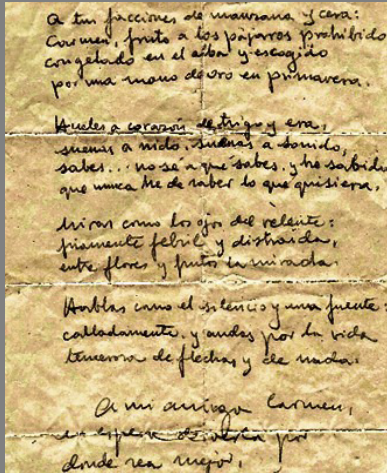 a tus facciones de manzana y cera:
Carmen, fruto a los pájaros prohibido
congelado en el alba y escogido
por una mano de oro en primavera.
Hueles a corazón de trigo y era,
suenas a nido, suenas a sonido,
sabes... no sé a qué sabes, y he sabido
que nunca he de saber lo que quisiera.
Miras como los ojos del relente:
friamente febril y distraida,
entre flores y frutos la mirada.
Hablas como el silencio y una fuente:
calladamente, y andas por la vida
temerosa de flechas y de nada.
A mi amiga Carmen,
espera por
donde sea mejor.